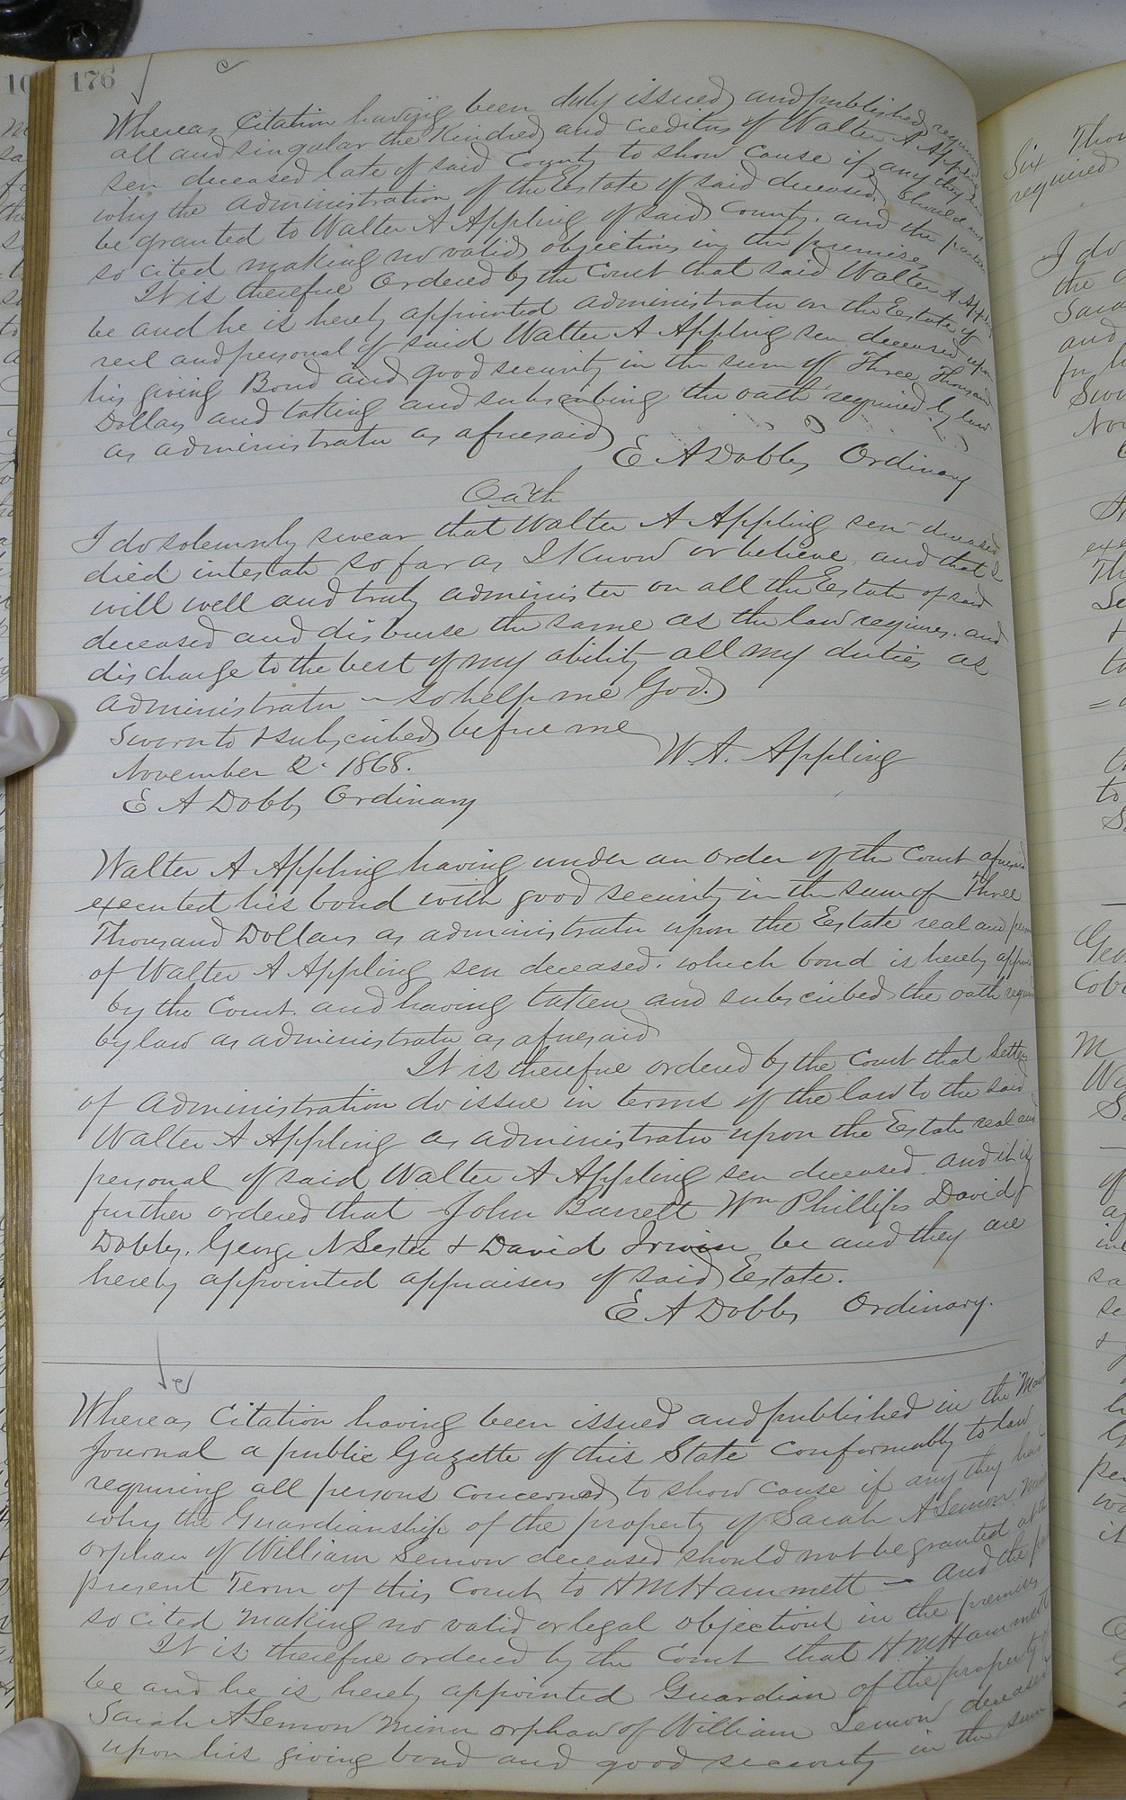 176
Whereas Citation having been duly issued and published requiring
all and singular the Kindred and creditors of Walter A Appling
sen deceased late of said County to show cause if any they
why the administration of the Estate of said deceased should not
be granted to Walter A Appling of said County. and the parties
so cited making no valid objections in the premises
It is therefore Ordered by the Court that said Walter A Appling
be and he is hereby appointed administrator on the Estate of
real and personal of said Walter A Appling sen deceased upon
his giving Bond and good security in the sum of Three Thousand
Dollars and taking and subscribing the oath required by law
as administrator as aforesaid
E A Dobbs Ordinary
Oath
I do solemnly swear that Walter A Appling sen deceased
died intestate so far as I know or believe and that I
will well and truly administer on all the Estate of said
deceased and disburse the same as the law requires. and
discharge to the best of my ability all my duties as
administrator - so help me God.
Sworn to & subscribed before me
W. A. Appling
November 2. 1868.
E A Dobbs Ordinary
Walter A Appling having under an order of the Court aforesaid
executed his bond with good security in the sum of Three
Thousand Dollars as administrator upon the Estate real and
of Walter A Appling sen deceased. which bond is hereby
by the Court. and having taken and subscribed the oath
by law as administrator as aforesaid
It is therefore ordered by the Court that Letters
of Administration do issue in terms of the law to the said
Walter A Appling as administrator upon the Estate real and
personal of said Walter A Appling sen deceased. and it is
further ordered that John Barrett Wm Phillips David
Dobbs. George N Lester & David Irwin be and they are
hereby appointed appraisers of said Estate.
E A Dobbs Ordinary.
Whereas Citation having been issued and published in the
Journal a public Gazette of this State conformably to law
requiring all persons concerned to show cause if any they have
why the Guardianship of the property of Sarah A Lemon
orphan of William Lemon deceased should not be granted at the
present Term of this Court to H M Hammett - and the
so cited making no valid or legal objections in the premises
It is therefore ordered by the Court that H M Hammett
be and he is hereby appointed Guardian of the property of
Sarah A Lemon minor orphan of William Lemon deceased
upon his giving bond and good security in the sum